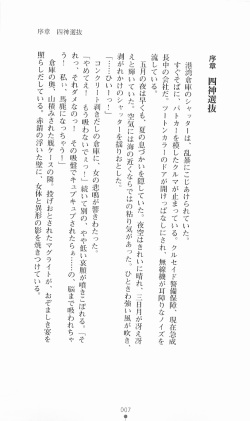 序章　四神選抜
序章　四神選抜
　港湾倉庫のシャッターは、乱暴にこじあけられていた。
　すぐそばに、パトカーを模したクルマが止まっている。クルセイド警備保障、現在急成
長中の会社だ。ツートンカラーのドアが開けっぱなしにされ、無線機が耳障りなノイズを
流している。
　五月の夜は早くも、夏の息づかいを隠していた。夜空はきれいに晴れ、三日月が冴え冴
えと輝いていた。空気には海の近くならではの粘り気があった。ひときわ強い風が吹き、
剥がれかけのシャッターを揺りおとした。
「……ひいーっ！」
　コンクリート剥きだしの倉庫に、女の悲鳴が響きわたった。
「やめてえ！　もう吸わないでぇっ！」続いて別の、やや低い哀願が噴きこぼれる。「そ
っ、それダメなのっ！　その吸盤でキュプキュプされたらぁ……の、脳まで吸われちゃ
う！　私ぃ、馬鹿になっちゃうー！」
　倉庫の奥、山積みされた腕ケースの隣、投げおとされたマグライトが、おぞましき宴を
照らしだしている。赤錆の浮いた壁に、女体と異形の影を焼きつけている。
007